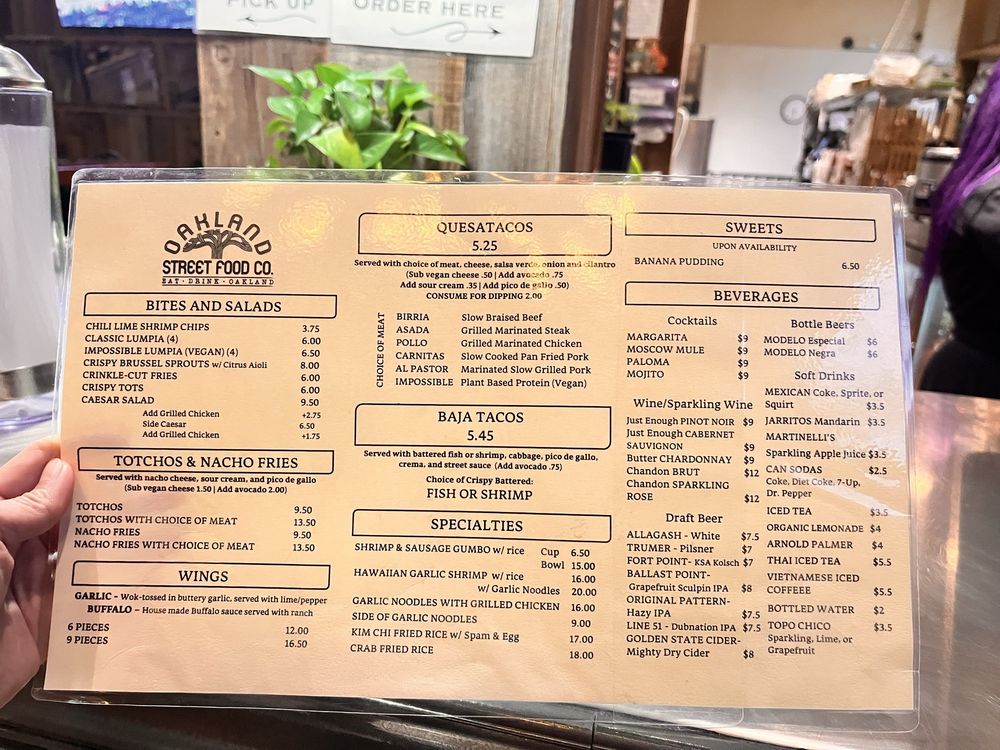 PICK UP
ORDER HERE
OAKLAND
STREET FOOD CO.
EAT · DRINK · OAKLAND
BITES AND SALADS
CHILI LIME SHRIMP CHIPS 3.75
CLASSIC LUMPIA (4) 6.00
IMPOSSIBLE LUMPIA (VEGAN) (4) 6.50
CRISPY BRUSSEL SPROUTS w/ Citrus Aioli 8.00
CRINKLE-CUT FRIES 6.00
CRISPY TOTS 6.00
CAESAR SALAD 9.50
Add Grilled Chicken +2.75
Side Caesar 6.50
Add Grilled Chicken +1.75
TOTCHOS & NACHO FRIES
Served with nacho cheese, sour cream, and pico de gallo
(Sub vegan cheese 1.50 | Add avocado 2.00)
TOTCHOS 9.50
TOTCHOS WITH CHOICE OF MEAT 13.50
NACHO FRIES 9.50
NACHO FRIES WITH CHOICE OF MEAT 13.50
WINGS
GARLIC - Wok-tossed in buttery garlic, served with lime/pepper
BUFFALO - House made Buffalo sauce served with ranch
6 PIECES 12.00
9 PIECES 16.50
QUESATACOS
5.25
Served with choice of meat, cheese, salsa verde, onion and cilantro
(Sub vegan cheese .50 | Add avocado .75
Add sour cream .35 | Add pico de gallo .50)
CONSUME FOR DIPPING 2.00
CHOICE OF MEAT
BIRRIA Slow Braised Beef
ASADA Grilled Marinated Steak
POLLO Grilled Marinated Chicken
CARNITAS Slow Cooked Pan Fried Pork
AL PASTOR Marinated Slow Grilled Pork
IMPOSSIBLE Plant Based Protein (Vegan)
BAJA TACOS
5.45
Served with battered fish or shrimp, cabbage, pico de gallo,
crema, and street sauce (Add avocado .75)
Choice of Crispy Battered:
FISH OR SHRIMP
SPECIALTIES
SHRIMP & SAUSAGE GUMBO w/ rice Cup 6.50
Bowl 15.00
HAWAIIAN GARLIC SHRIMP w/ rice 16.00
w/ Garlic Noodles 20.00
GARLIC NOODLES WITH GRILLED CHICKEN 16.00
SIDE OF GARLIC NOODLES 9.00
KIM CHI FRIED RICE w/ Spam & Egg 17.00
CRAB FRIED RICE 18.00
SWEETS
UPON AVAILABILITY
BANANA PUDDING 6.50
BEVERAGES
Cocktails
MARGARITA $9
MOSCOW MULE $9
PALOMA $9
MOJITO $9
Wine/Sparkling Wine
Just Enough PINOT NOIR $9
Just Enough CABERNET
SAUVIGNON $9
Butter CHARDONNAY $9
Chandon BRUT $12
Chandon SPARKLING
ROSE $12
Draft Beer
ALLAGASH - White $7.5
TRUMER - Pilsner $7
FORT POINT- KSA Kolsch $7
BALLAST POINT-
Grapefruit Sculpin IPA $8
ORIGINAL PATTERN-
Hazy IPA $7.5
LINE 51 - Dubnation IPA $7.5
GOLDEN STATE CIDER-
Mighty Dry Cider $8
Bottle Beers
MODELO Especial $6
MODELO Negra $6
Soft Drinks
MEXICAN Coke, Sprite, or
Squirt $3.5
JARRITOS Mandarin $3.5
MARTINELLI'S
Sparkling Apple Juice $3.5
CAN SODAS $2.5
Coke, Diet Coke, 7-Up,
Dr. Pepper
ICED TEA $3.5
ORGANIC LEMONADE $4
ARNOLD PALMER $4
THAI ICED TEA $5.5
VIETNAMESE ICED
COFFEEE $5.5
BOTTLED WATER $2
TOPO CHICO $3.5
Sparkling, Lime, or
Grapefruit